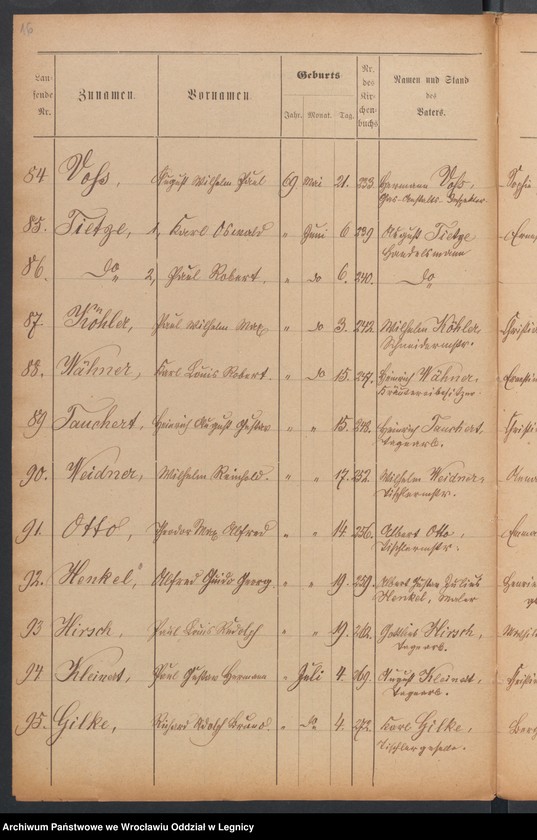 16
Lau-
fende
Nr.
Zunamen.
Vornamen.
Geburts
Jahr. Monat. Tag.
Nr.
des
Kir-
chen-
buchs
Namen und Stand
des
Vaters.
84 Vohs, August Wilhelm Paul 69 Mai 21. 233. Hermann Vohs,
Gas-Anstalts-Inspektor
85. Tietze, 1, Karl Oswald " Juni 6 239 August Tietze
Handelsmann
86. do 2, Paul Robert. " do 6. 240. do
87. Köhler, Paul Wilhelm Max " do 3. 242. Wilhelm Köhler,
Schneidermstr.
88. Wähner, Karl Louis Robert. " do 15. 247. Heinrich Wähner,
89 Tauchert, Heinrich August Gustav " " 15. 248. Heinrich Tauchert,
Tagearb.
90. Weidner, Wilhelm Reinhold. " " 17. 252. Wilhelm Weidner,
Tischlermstr.
91. Otto, Theodor Max Alfred " " 14 256. Albert Otto,
Tischlermstr.
92. Henkel, Alfred Guido Georg. " " 19. 259. Albert Gustav Julius
Henkel, Maler
93 Hirsch, Paul Louis Rudolph " " 19. 262. Gottlieb Hirsch,
Tagearb.
94 Kleinert, Paul Gustav Hermann " Juli 4. 269. August Kleinert,
Tagearb.
95. Gilke, Richard Adolph Bruno. " do 4. 272. Karl Gilke,
Tischlergeselle.
Archiwum Państwowe we Wrocławiu Oddział w Legnicy